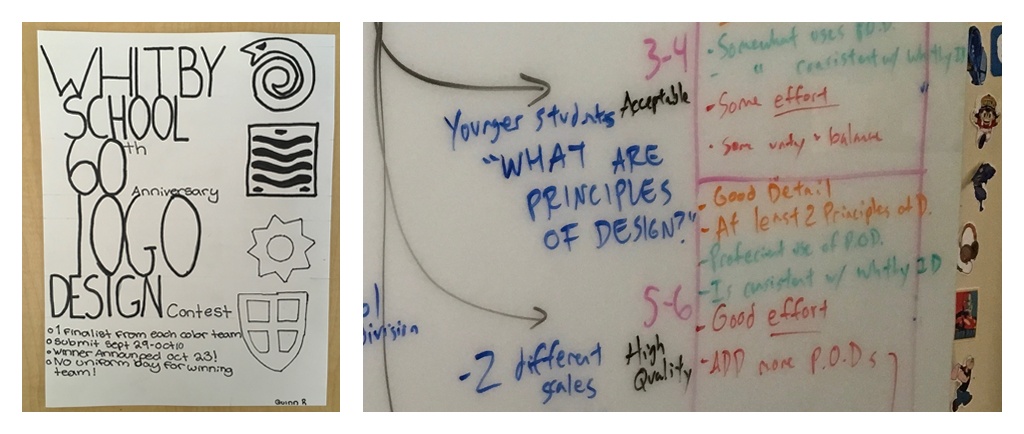 WHITBY
SCHOOL
60th
Anniversary
LOGO
DESIGN Contest
1 Finalist from each color team
Submit Sept 29-Oct10
Winner Announced Oct 23!
No uniform day for winning
team!
Quinn R
3-4
Acceptable
Younger students
"WHAT ARE
PRINCIPLES
OF DESIGN?"
- Somewhat uses P.O.D.
- " consistent w/ Whitby ID
- Some effort
- Some unity + balance
5-6
High
Quality
-2 different
scales
Division
- Good Detail
- At least 2 Principles of D.
- Proficient use of P.O.D.
- Is consistent w/ Whitby ID
- Good effort
- ADD more P.O.D s